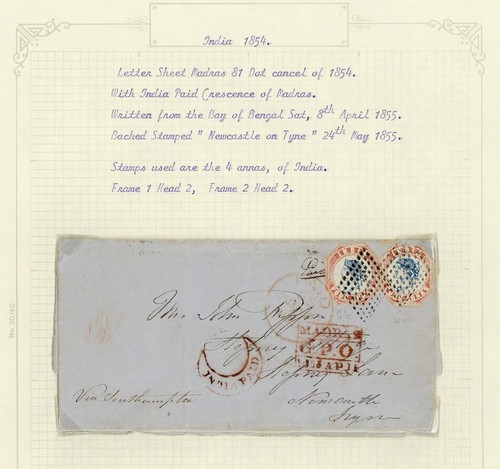 India 1854.
Letter Sheet Madras 81 Dot cancel of 1854.
With India Paid Crescence of Madras.
Written from the Bay of Bengal Sat, 8th April 1855.
Backed Stamped " Newcastle on Tyne " 24th May 1855.
Stamps used are the 4 annas, of India.
Frame 1 Head 2, Frame 2 Head 2.
Paid
Mr. John
MADRAS
G.P.O
INDIA PAID
Via Southampton
Newcastle
Tyne
No 20/40